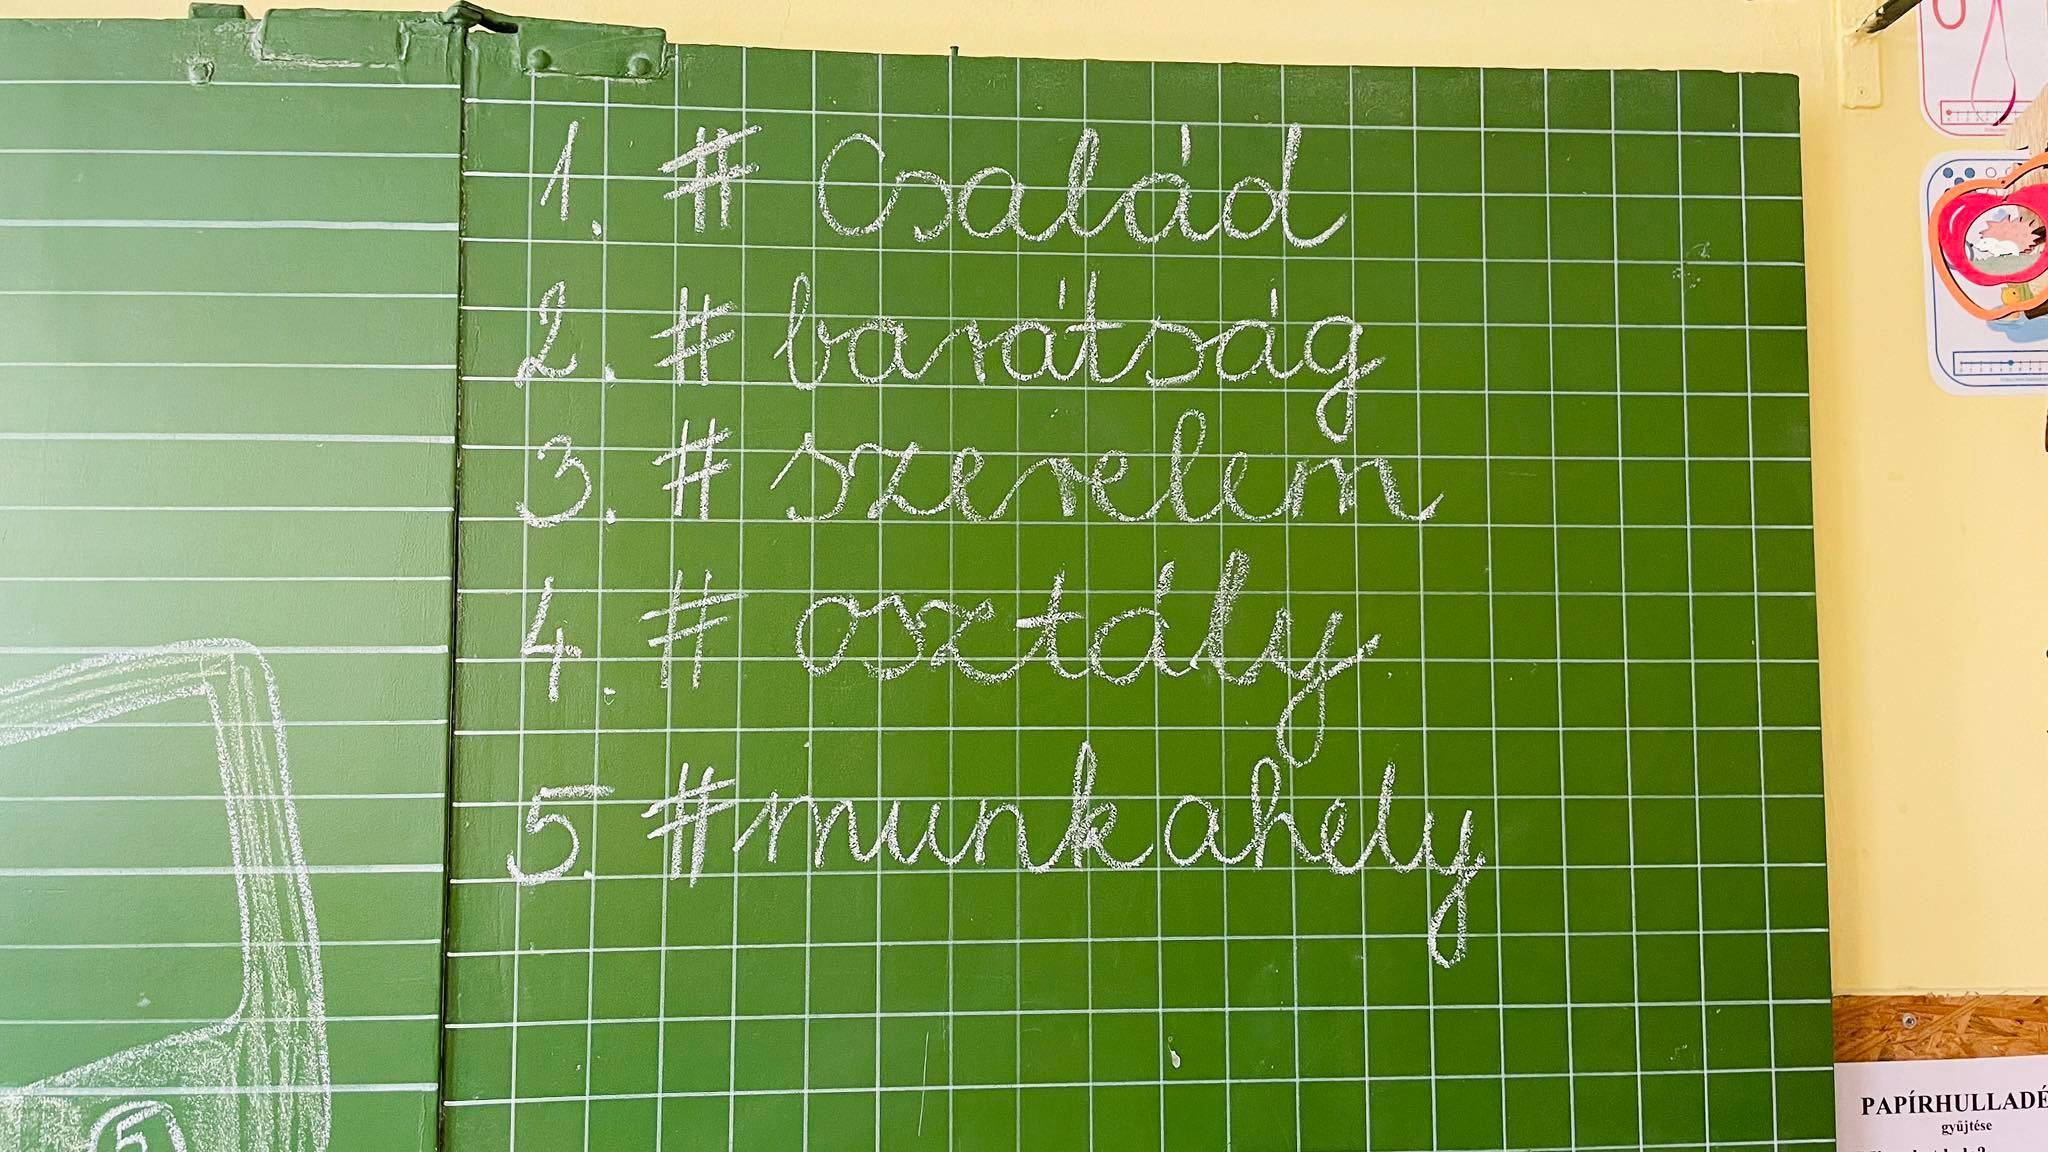 1. # Család
2. # barátság
3. # szerelem
4. # osztály
5. #munkahely
5
PAPÍRHULLADÉ
gyűjtése